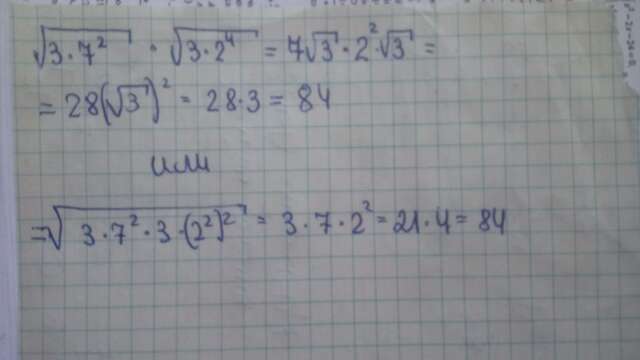 √(3·7²) · √(3·2⁴) = 7√3 · 2²√3 =
= 28(√3)² = 28·3 = 84
или
=√(3·7²·3·(2²)²) = 3·7·2² = 21·4 = 84